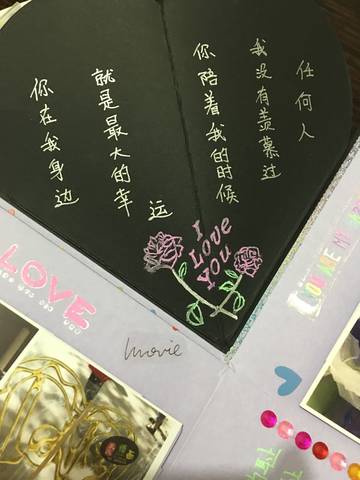 你在我身边
就是最大的幸运
你陪着我的时候
我没有羡慕过
任何人
I
Love
You
LOVE
YOU ARE MY
movie